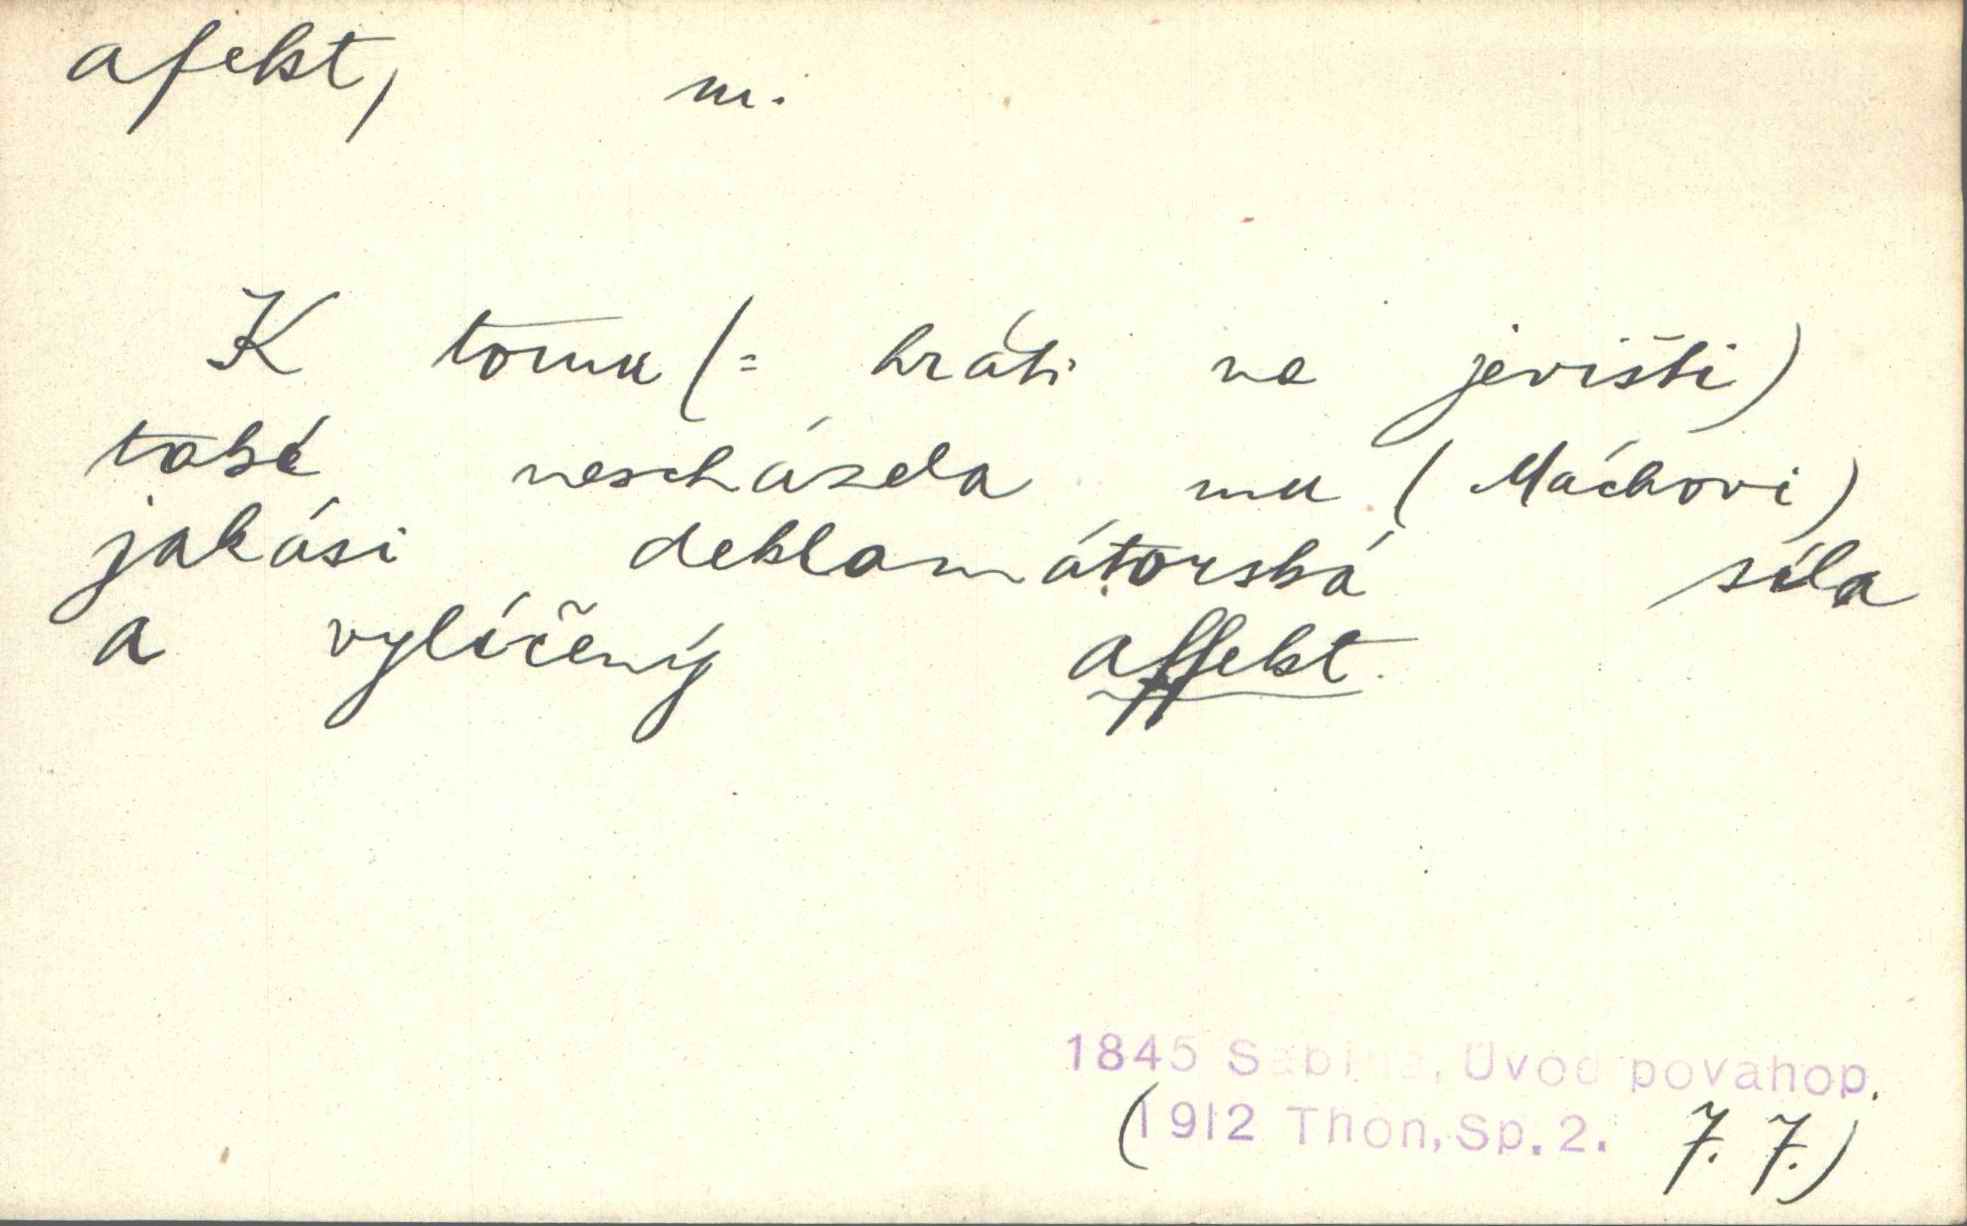 afekt, m.
K tomu (= hráti na jevišti)
také nescházela mu (Máchovi)
jakási deklamátorská síla
a vylíčený affekt.
1845 Sabina, Úvod povahop.
(1912 Thon, Sp. 2. 7. 7.)